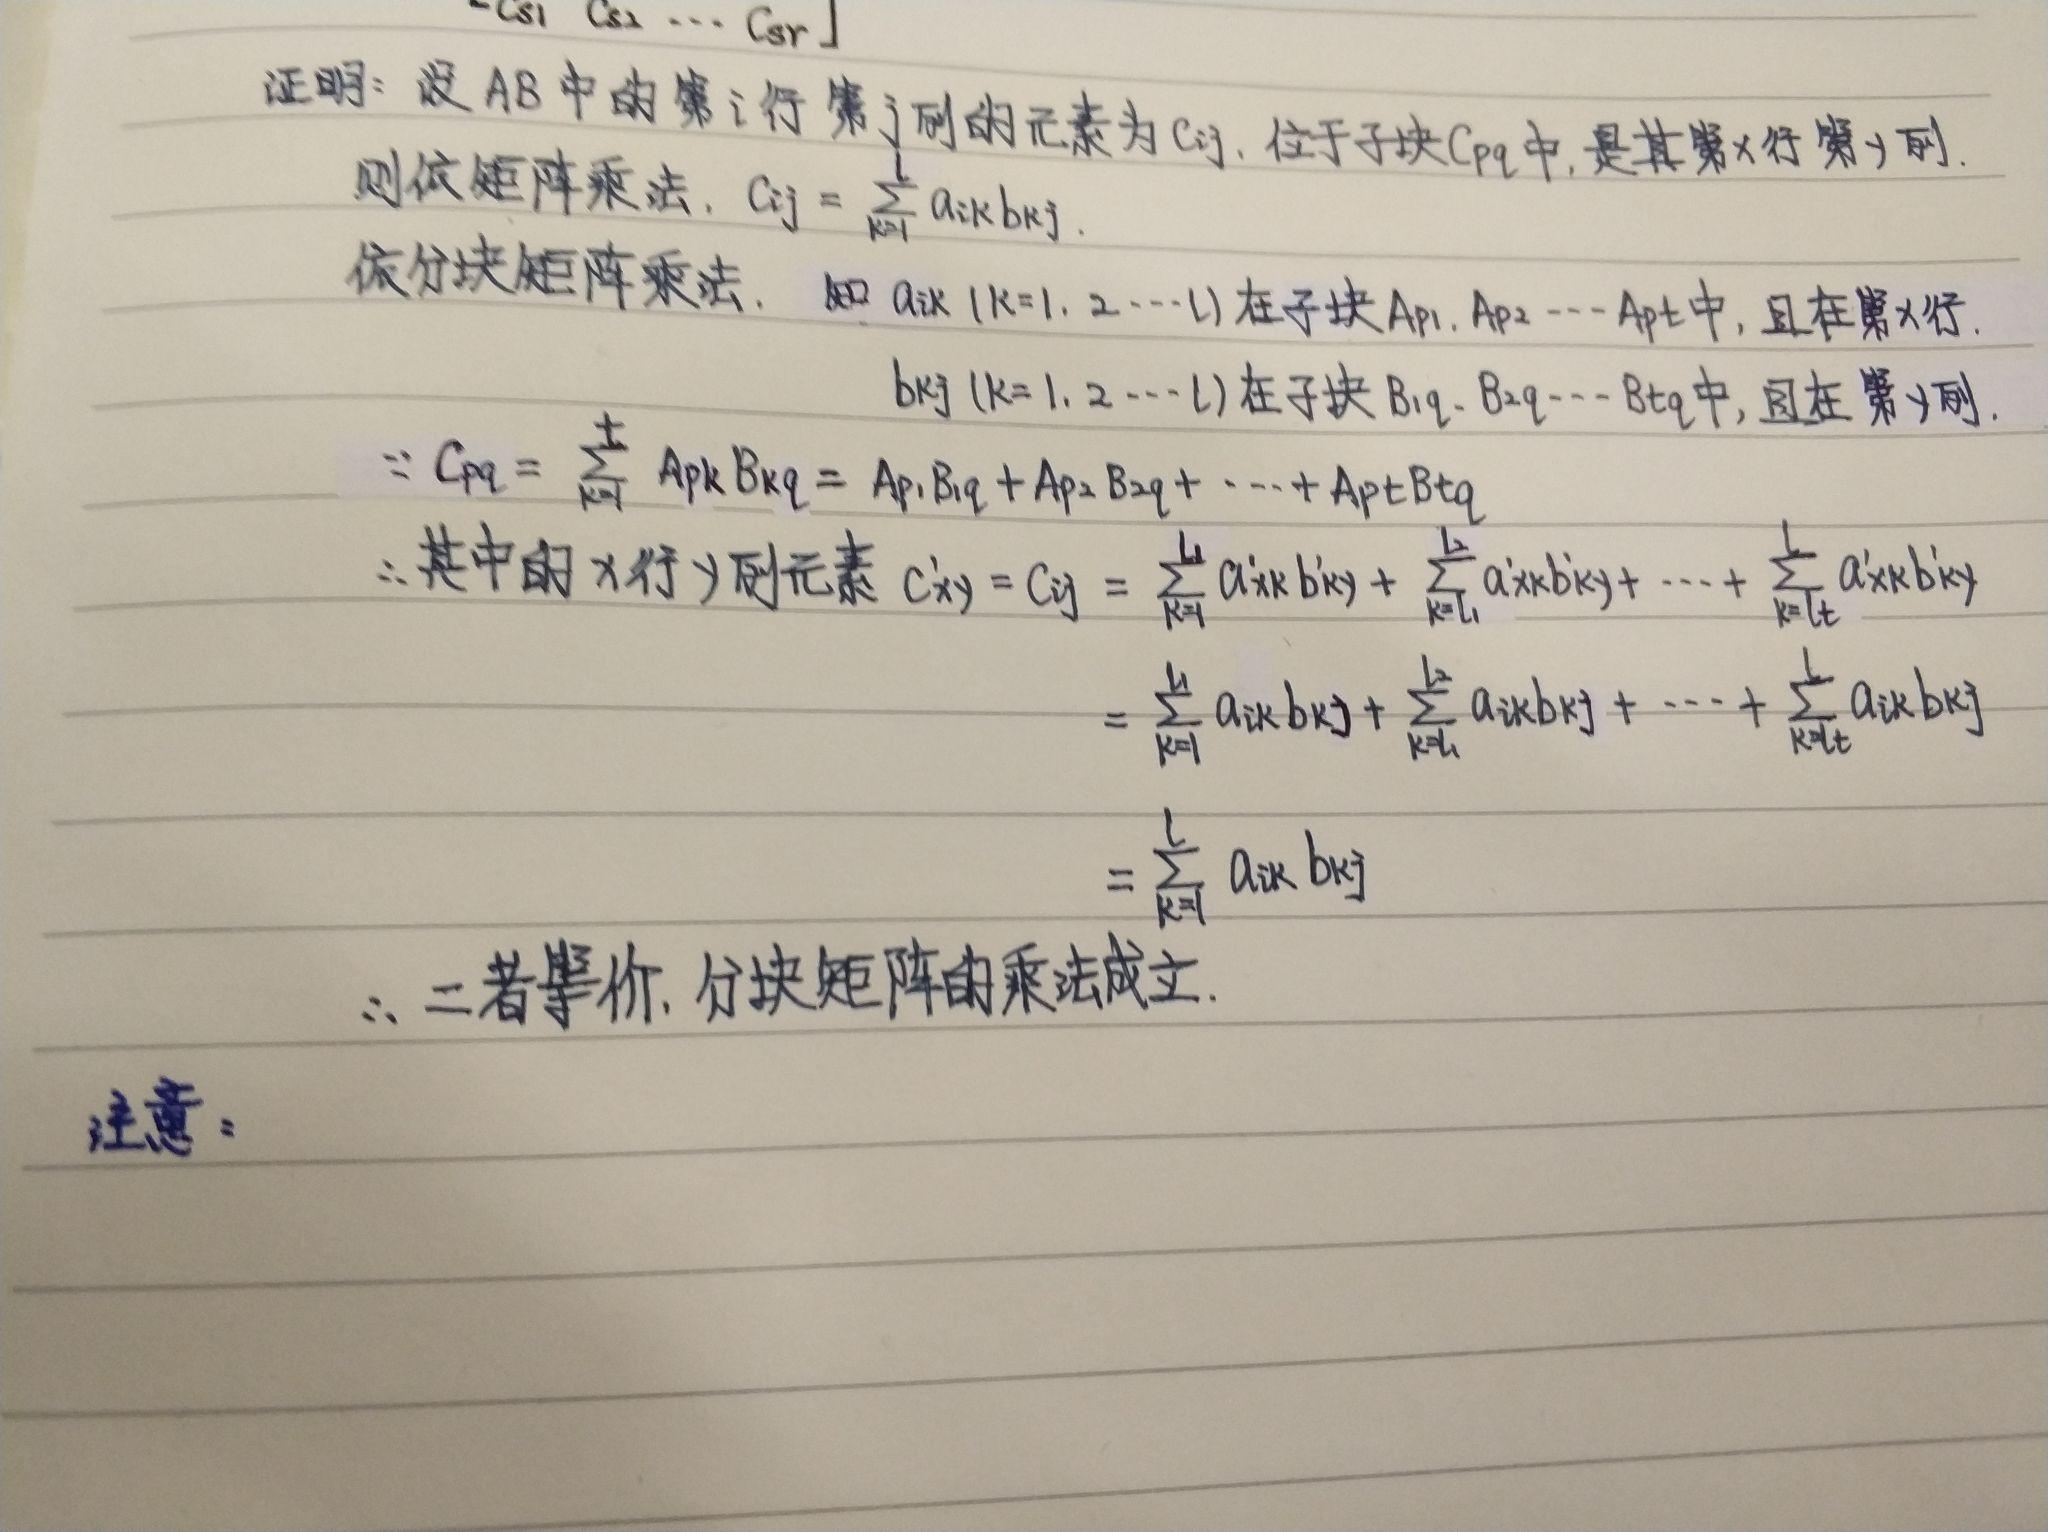 Cs1 Cs2 ··· Csr]
证明: 设 AB 中的第 i 行 第 j 列的元素为 Cij, 位于子块 Cpq 中, 是其第 x 行 第 y 列.
则依矩阵乘法, Cij = ∑_{k=1}^{l} aik bkj.
依分块矩阵乘法, 知 aik (k=1, 2 ··· l) 在子块 Ap1, Ap2 ··· Apt 中, 且在第 x 行.
bkj (k=1, 2 ··· l) 在子块 B1q, B2q ··· Btq 中, 且在第 y 列.
∵ Cpq = ∑_{k=1}^{t} Apk Bkq = Ap1B1q + Ap2 B2q + ··· + AptBtq
∴ 其中的 x 行 y 列元素 C'xy = Cij = ∑_{k=1}^{l1} a'xk b'ky + ∑_{k=l1}^{l2} a'xk b'ky + ··· + ∑_{k=lt}^{l} a'xk b'ky
= ∑_{k=1}^{l1} aik bkj + ∑_{k=l1}^{l2} aik bkj + ··· + ∑_{k=lt}^{l} aik bkj
= ∑_{k=1}^{l} aik bkj
∴ 二者等价, 分块矩阵的乘法成立.
注意: